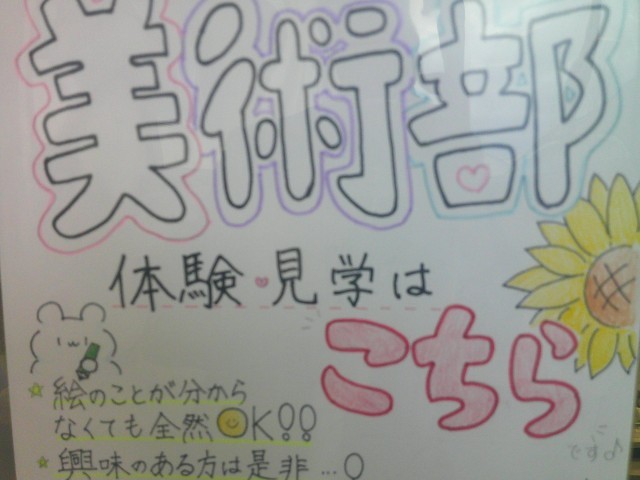 美術部
体験・見学は
こちら
です♪
☆絵のことが分から
なくても全然OK!!
☆興味のある方は是非…○